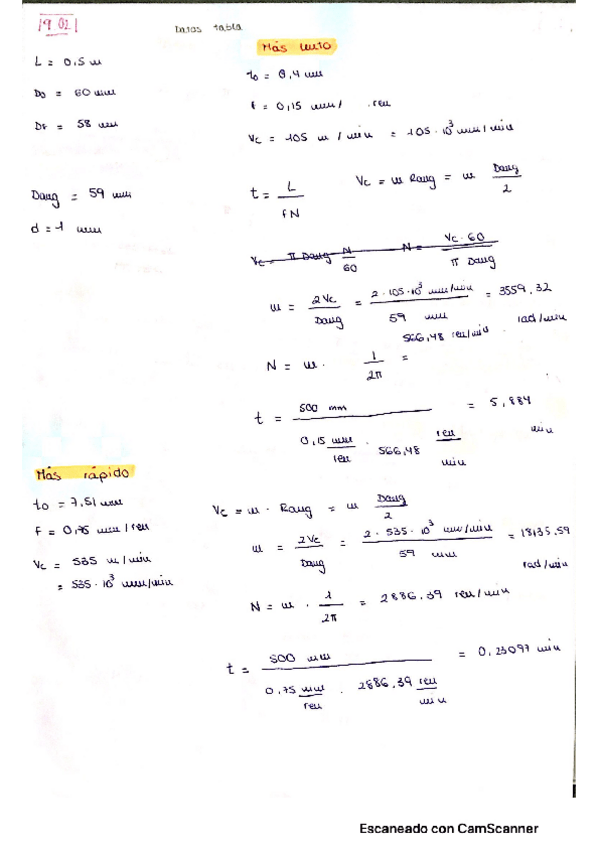 19.02
Datos tabla
L = 0,5 m
D0 = 60 mm
Df = 58 mm
Davg = 59 mm
d = 1 mm
Más lento
t0 = 0,4 mm
f = 0,15 mm/rev
Vc = 105 m/min = 105·10³ mm/min
t = L / fN
Vc = w Ravg = w Davg / 2
Vc = π Davg N / 60
N = Vc·60 / π Davg
w = 2Vc / Davg = 2·105·10³ mm/min / 59 mm = 3559,32 rad/min
N = w · 1 / 2π = 566,48 rev/min
t = 500 mm / 0,15 mm/rev · 566,48 rev/min = 5,884 min
Más rápido
t0 = 7,51 mm
f = 0,75 mm/rev
Vc = 535 m/min
= 535·10³ mm/min
Vc = w · Ravg = w Davg / 2
w = 2Vc / Davg = 2·535·10³ mm/min / 59 mm = 18135,59 rad/min
N = w · 1 / 2π = 2886,39 rev/min
t = 500 mm / 0,75 mm/rev · 2886,39 rev/min = 0,23097 min
Escaneado con CamScanner